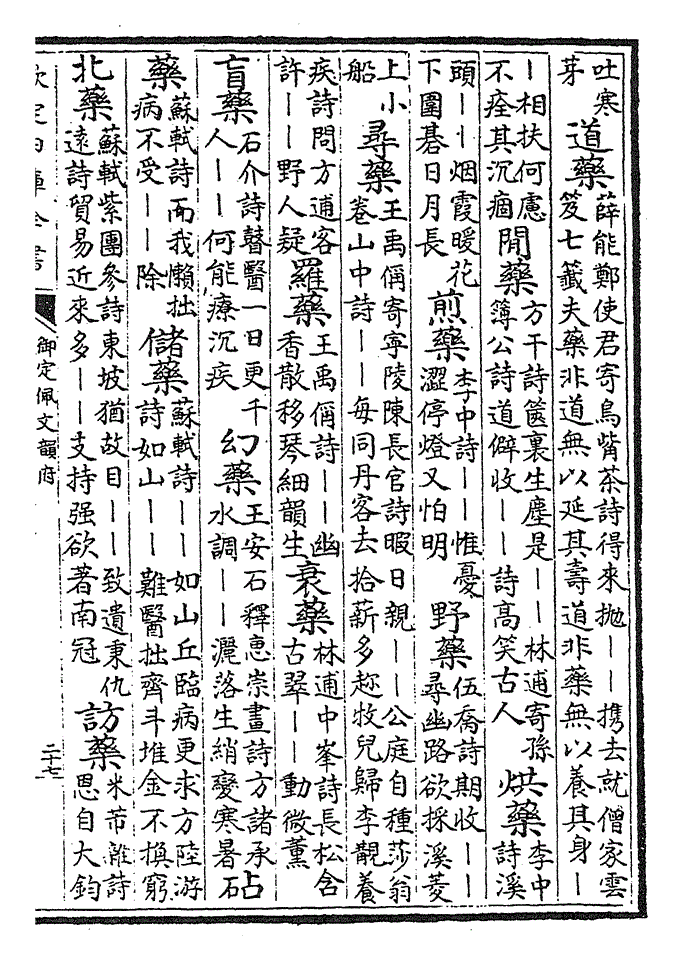 吐寒芽 道藥 薛能鄭使君寄鳥觜茶詩得來抛｜｜携去就僧家雲笈七籤夫藥非道無以延其壽道非藥無以養其身｜
｜相扶何慮不痊其沉痼 閒藥 方干詩篋裏生塵是｜｜林逋寄孫簿公詩道僻收｜｜詩高笑古人 烘藥 李中詩溪
頭｜｜烟霞暖花下圍碁日月長 煎藥 李中詩｜｜惟憂澀停燈又怕明 野藥 伍喬詩期收｜｜尋幽路欲採溪菱
上小船 尋藥 王禹偁寄寧陵陳長官詩暇日親｜｜公庭自種莎翁卷山中詩｜｜每同丹客去拾薪多趂牧兒歸李覯養
疾詩問方逋客許｜｜野人疑 羅藥 王禹偁詩｜｜幽香散移琴細韻生 衰藥 林逋中峯詩長松含古翠｜｜動微薰
盲藥 石介詩瞽醫一日更千人｜｜何能療沉疾 幻藥 王安石釋惠崇畫詩方諸承占水調｜｜灑落生綃變寒暑石
藥 蘇軾詩而我懶拙病不受｜｜除 儲藥 蘇軾詩｜｜如山丘臨病更求方陸游詩如山｜｜｜難醫拙齊斗堆金不換窮
北藥 蘇軾紫團參詩東坡猶故目｜｜致遺秉仇遠詩貿易近來多｜｜支持强欲著南冠 訪藥 米芾離詩恩自大鈞
欽定四庫全書 御定佩文韻府 二十七